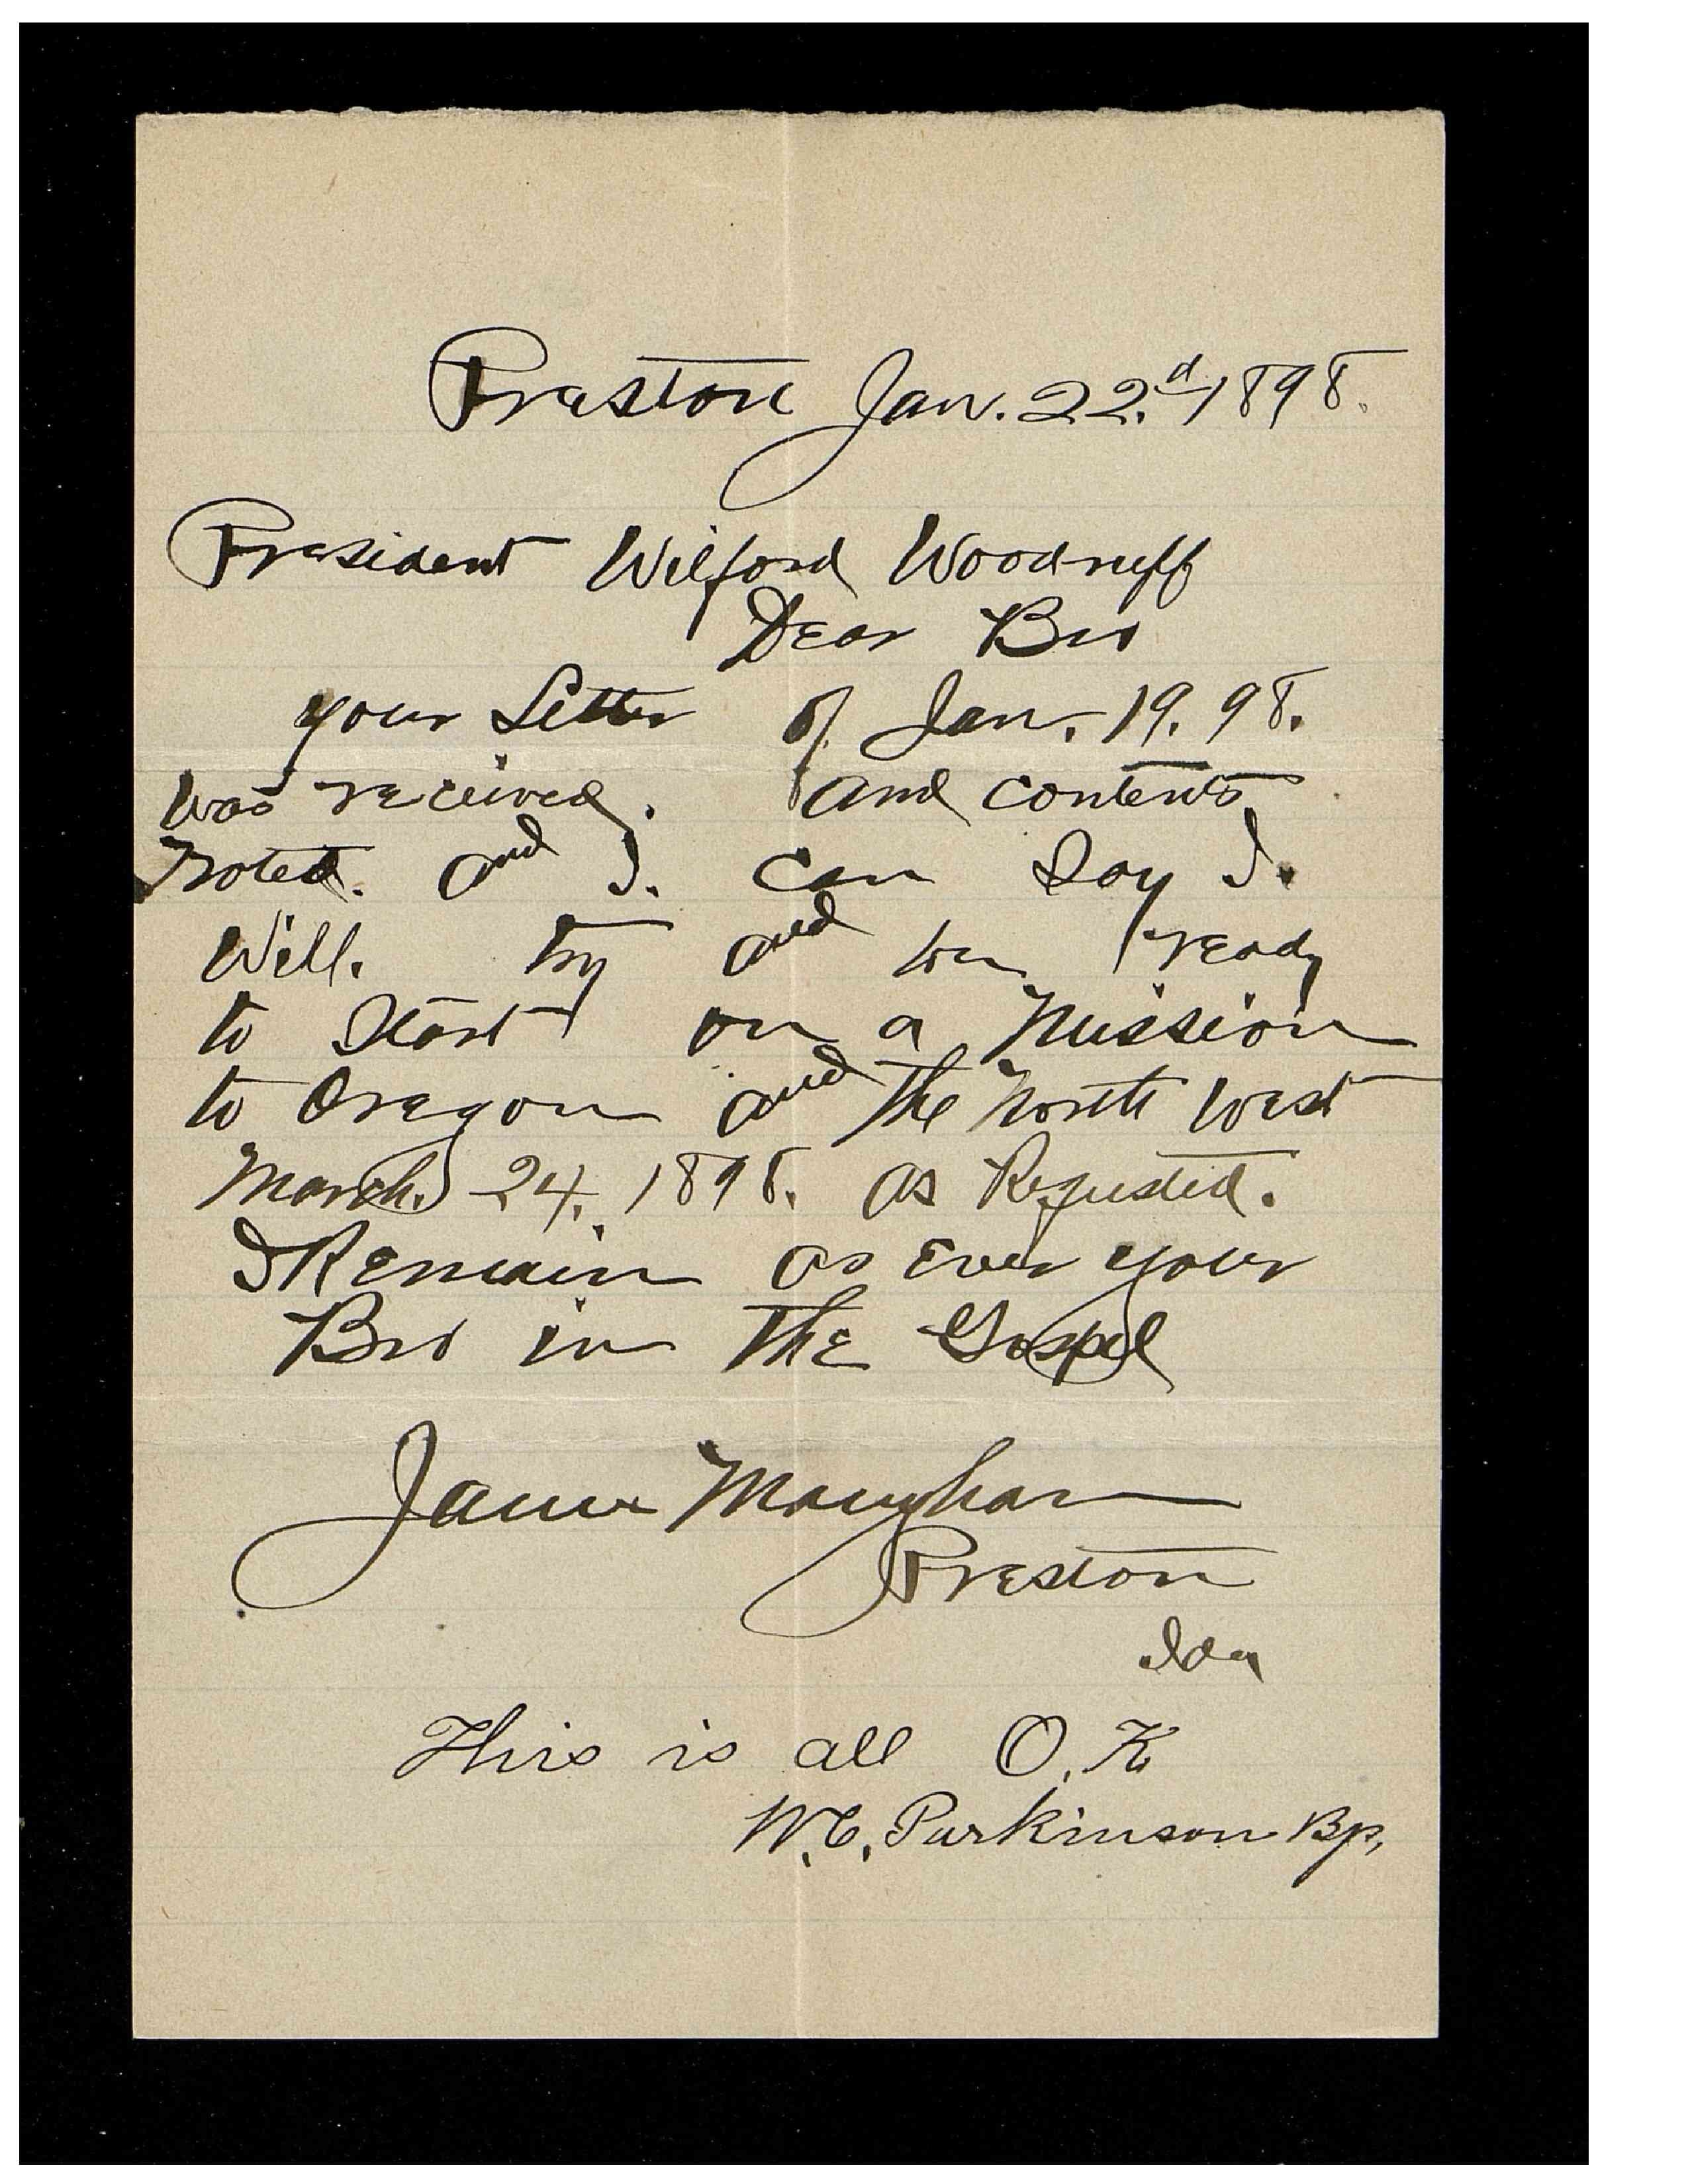 Preston Jan. 22.d 1898.
President Wilford Woodruff
Dear Bro
your Letter of Jan. 19. 98.
was received. and contents
noted. and I. can Say I.
Will. try and be ready
to Start on a Mission
to Oregon and the North West
March. 24. 1898. as Requested.
I Remain as Ever your
Bro in the Gospel
James Maughan
Preston
Ida
This is all O.K
W.C. Parkinson Bp,